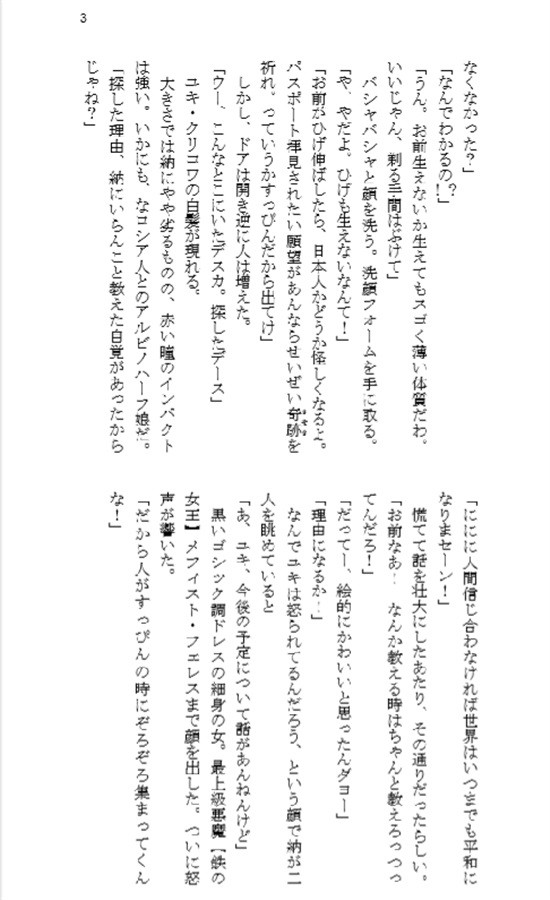 3
なくなかった？」
「なんでわかるの？！」
「うん。お前生えないか生えてもスゴく薄い体質だわ。
いいじゃん、剃る手間はぶけて」
　バシャバシャと顔を洗う。洗顔フォームを手に取る。
「や、やだよ。ひげも生えないなんて！」
「お前がひげ伸ばしたら、日本人かどうか怪しくなるぞ。
パスポート拝見されたい願望があんならせいぜい奇跡を
祈れ。っていうかすっぴんだから出てけ」
　しかし、ドアは開き逆に人は増えた。
「ウー、こんなとこにいたデスカ。探したデース」
　ユキ・クリコワの白髪が現れる。
　大きさでは納にやや劣るものの、赤い瞳のインパクト
は強い。いかにも、なロシア人とのアルビノハーフ娘だ。
「探した理由、納にいらんこと教えた自覚があったから
じゃね？」
「ににに人間信じ合わなければ世界はいつまでも平和に
なりまセーン！」
　慌てて話を壮大にしたあたり、その通りだったらしい。
「お前なあ！　なんか教える時はちゃんと教えろっつっ
てんだろ！」
「だってー、絵的にかわいいと思ったんダヨー」
「理由になるかー！」
　なんでユキは怒られてるんだろう、という顔で納が二
人を眺めていると
「あ、ユキ、今後の予定について話があんねんけど」
　黒いゴシック調ドレスの細身の女。最上級悪魔【鉄の
女王】メフィスト・フェレスまで顔を出した。ついに怒
声が響いた。
「だから人がすっぴんの時にぞろぞろ集まってくん
な！」